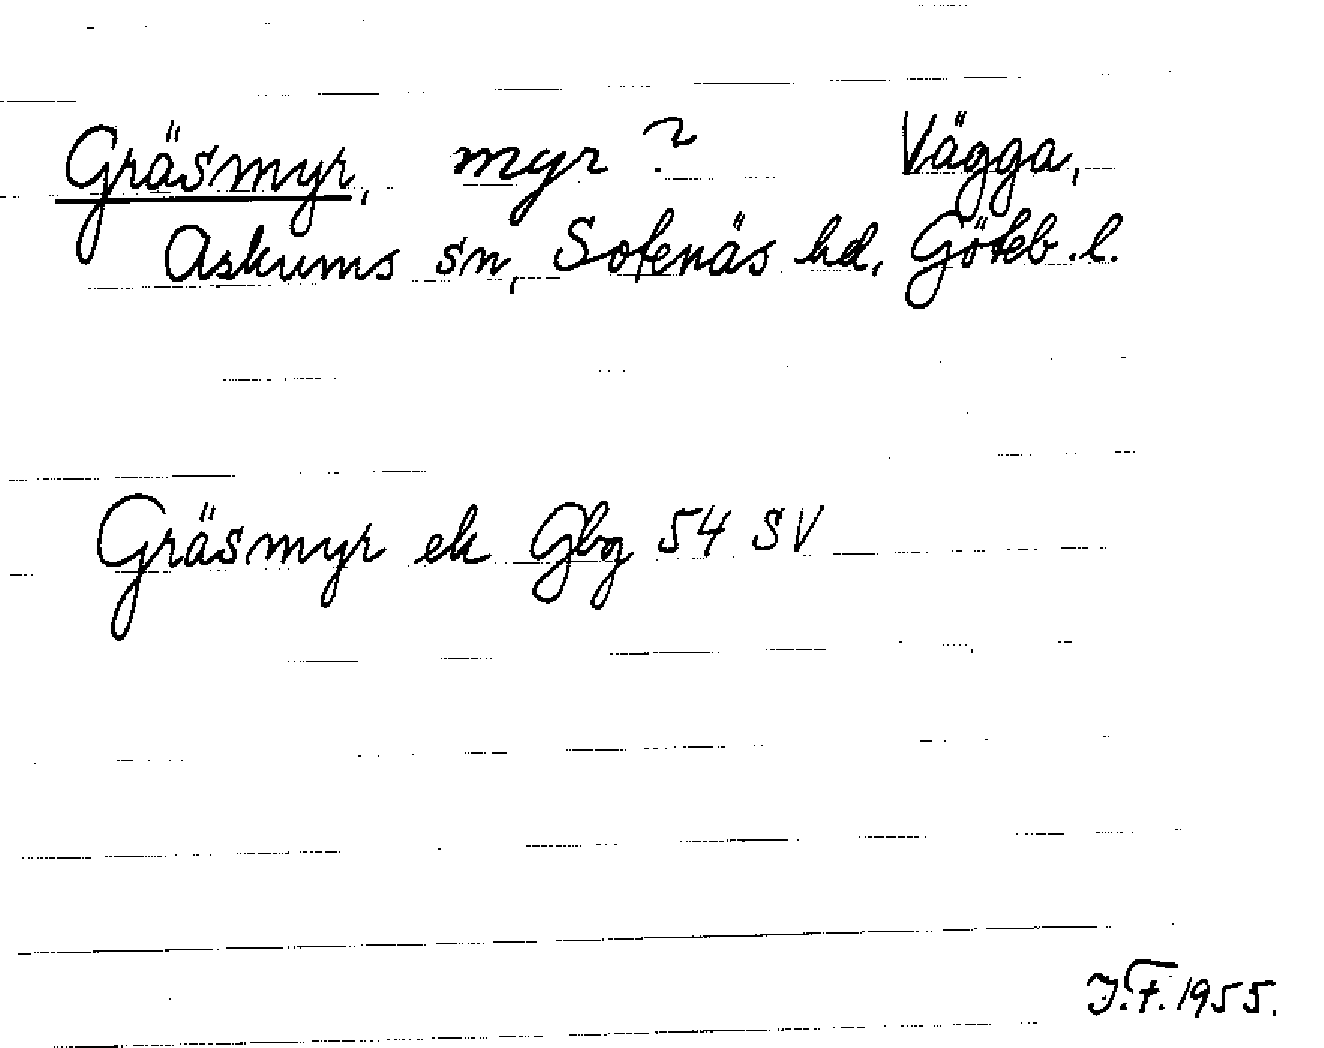 Gräsmyr, myr? Vägga,
Askums sn, Sotenäs hd, Göteb.l.
Gräsmyr ek Gbg 54 SV
J.F. 1955.